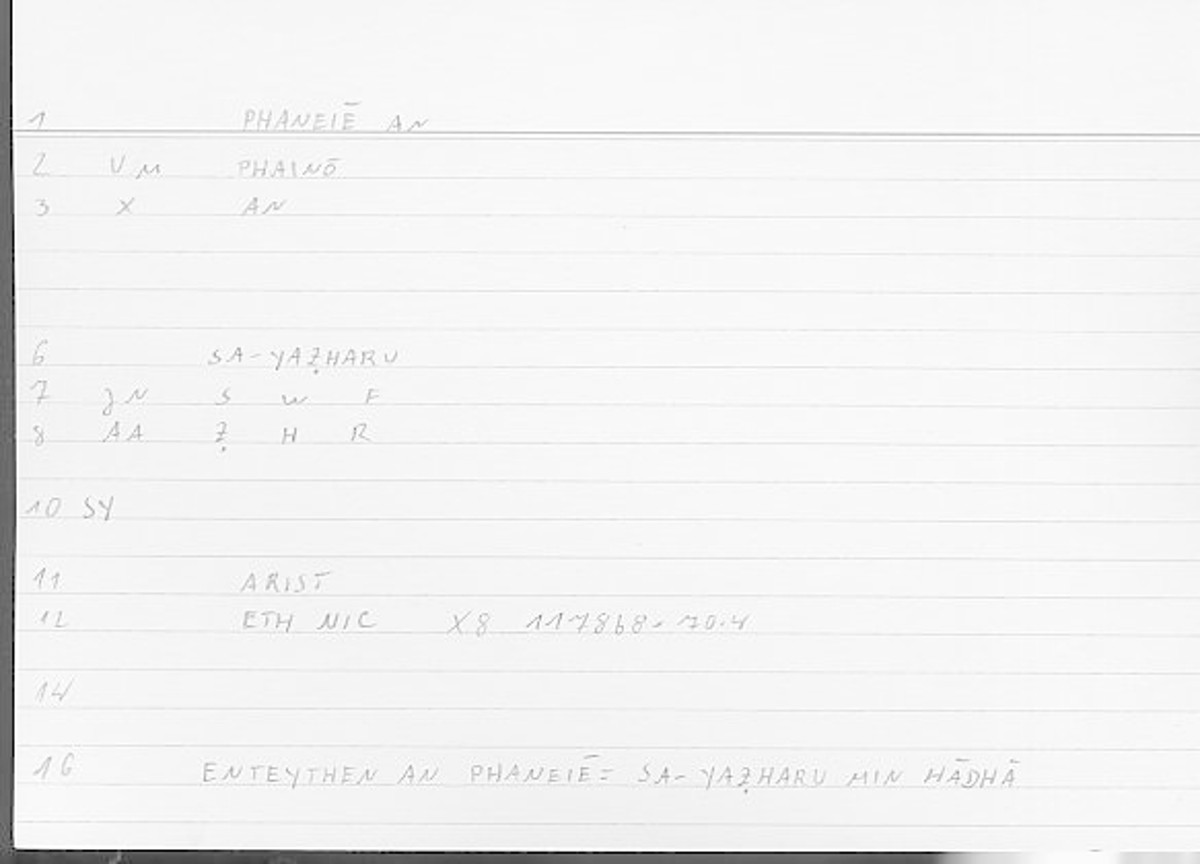 1 PHANEIĒ AN
2 V M PHAINŌ
3 X AN
6 SA-YAẒHARU
7 JN S W F
8 AA Ẓ H R
10 SY
11 ARIST
12 ETH NIC X8 1178b8. 20.4
14
16 ENTEYTHEN AN PHANEIĒ = SA-YAẒHARU MIN HĀDHĀ